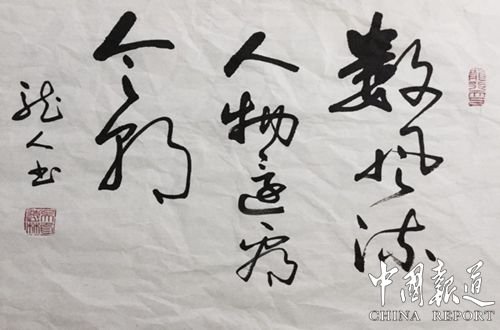 数风流
人物还看
今朝
龙人书
中国報道
CHINA REPORT